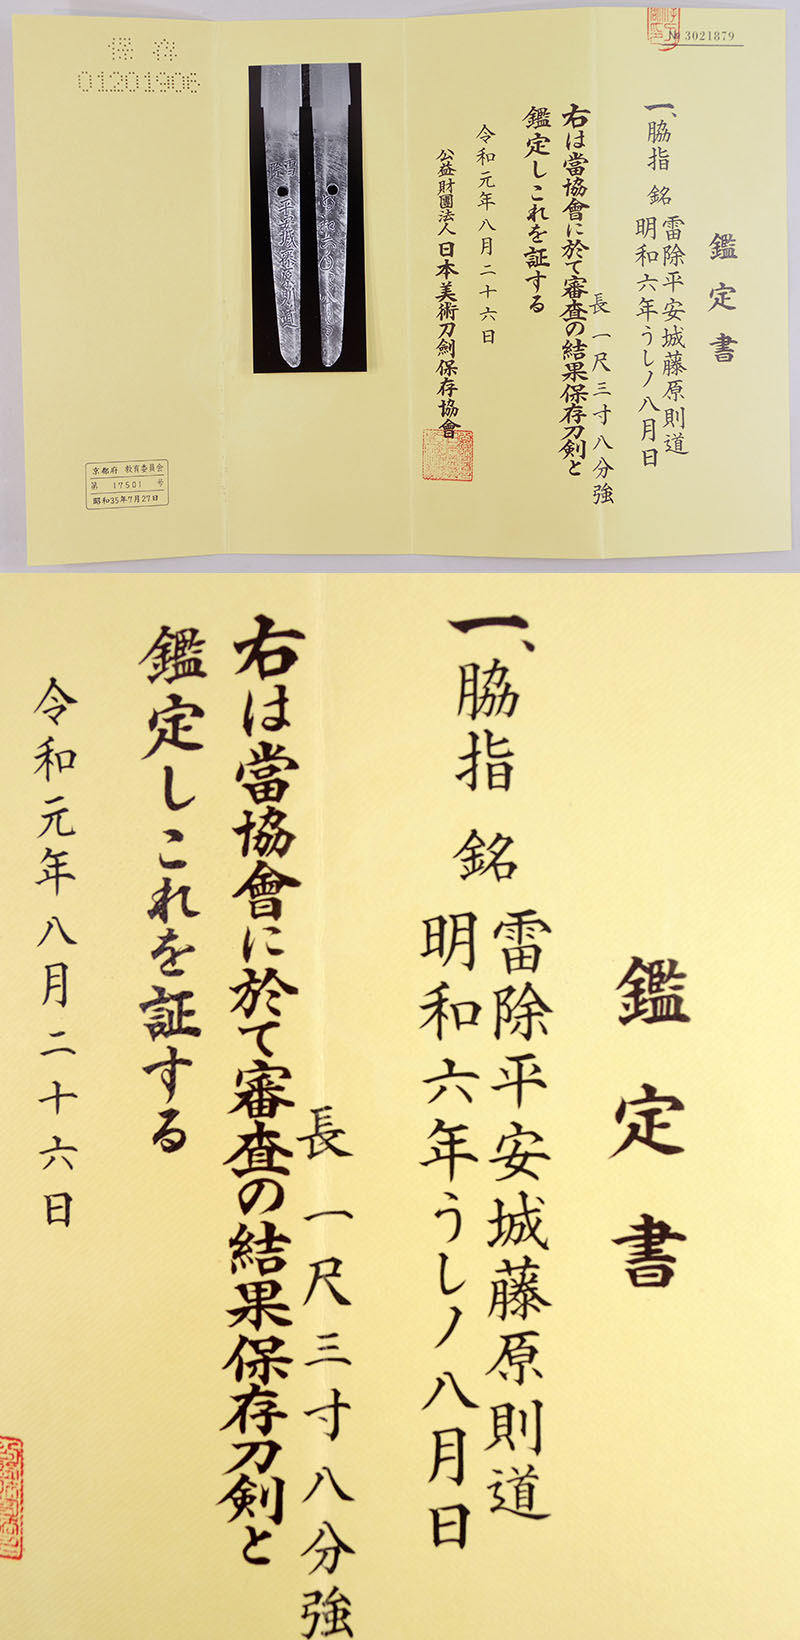 № 3021879
鑑定書
一、脇指 銘
雷除平安城藤原則道
明和六年うしノ八月日
長 一尺三寸八分強
右は當協會に於て審査の結果保存刀剣と
鑑定しこれを証する
令和元年八月二十六日
公益財團法人 日本美術刀劍保存協會
保存
01201906
京都府 教育委員会
第 17501 号
昭和35年7月27日
鑑定書
一、脇指 銘
雷除平安城藤原則道
明和六年うしノ八月日
長 一尺三寸八分強
右は當協會に於て審査の結果保存刀剣と
鑑定しこれを証する
令和元年八月二十六日